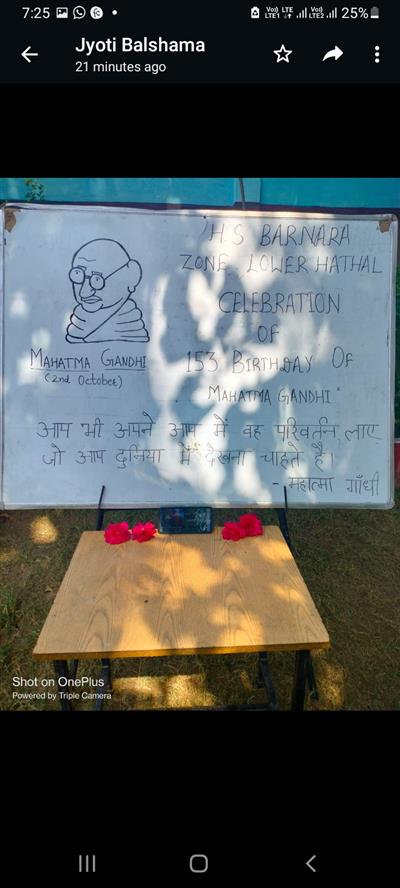 7:25
Vo)) LTE1 LTE Vo)) LTE2 25%
Jyoti Balshama
21 minutes ago
H.S BARNARA
ZONE LOWER HATHAL
CELEBRATION
OF
153 BIRTHDAY OF
MAHATMA GANDHI"
MAHATMA GANDHI
(2nd October)
आप भी अपने आप में वह परिवर्तन लाए
जो आप दुनिया में देखना चाहते हैं।
- महात्मा गाँधी
Shot on OnePlus
Powered by Triple Camera